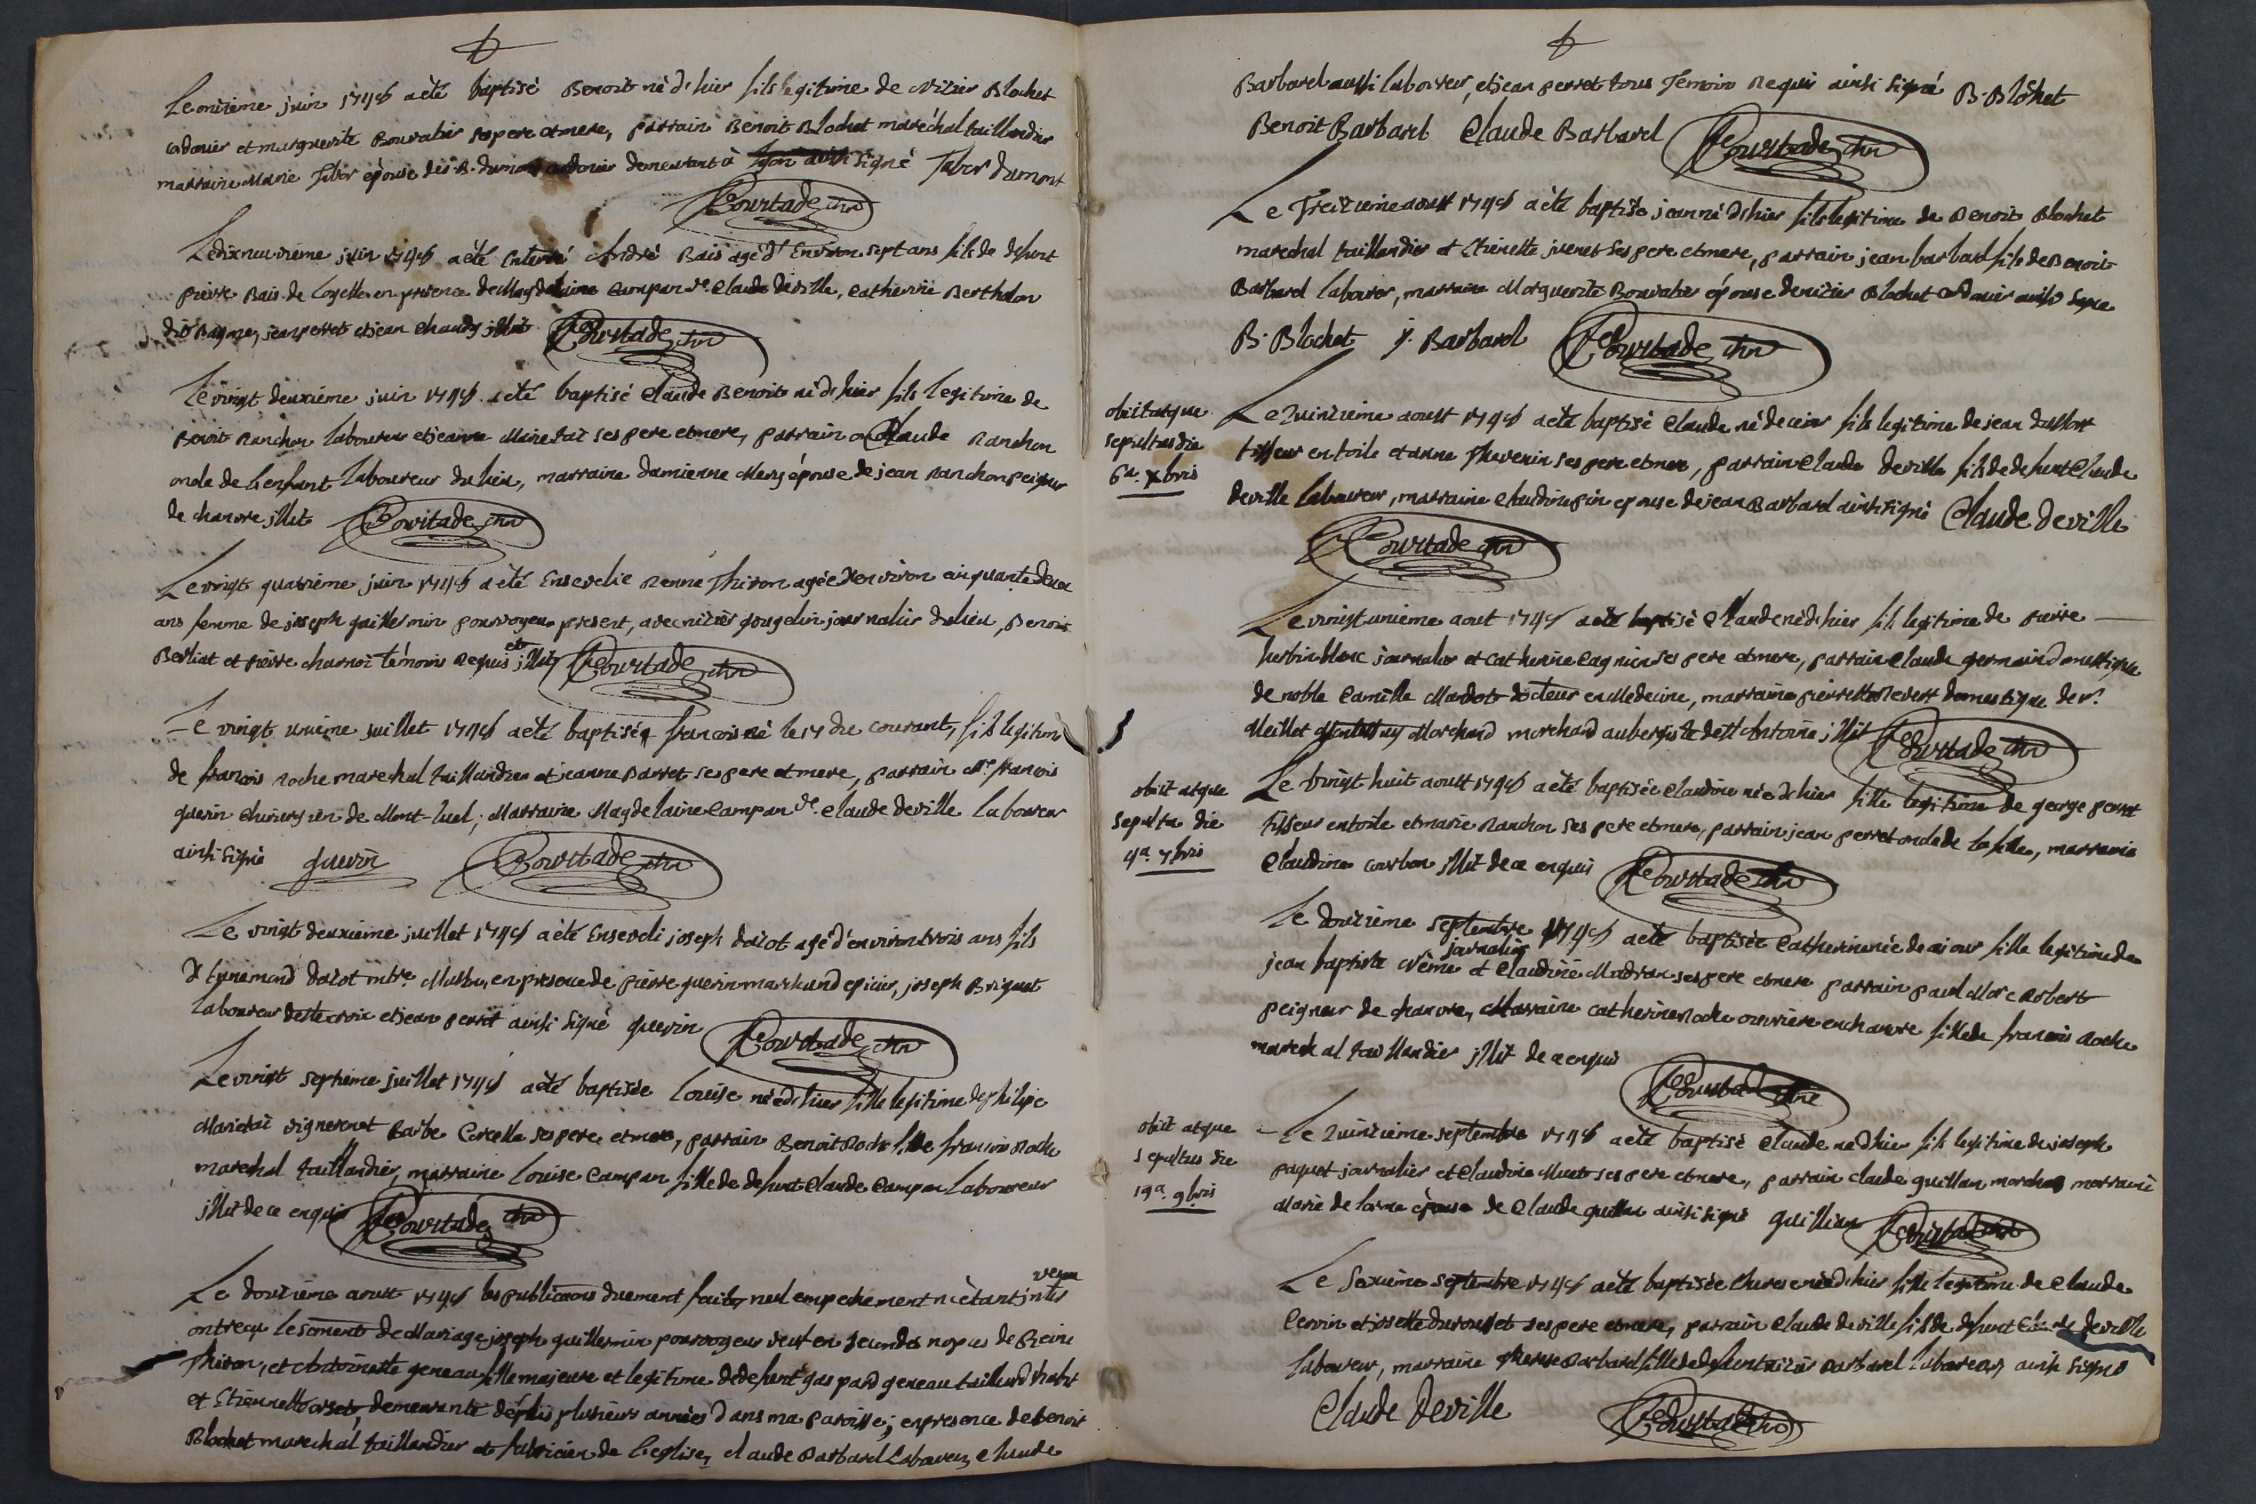 Le onzième juin 1748 a été baptisé Benoit né d'hier fils legitime de Nizier Blochet
cordonier et marguerite Bouvatier ses pere et mere, parrain Benoit Blochet maréchal taillandier
marraine Marie Tabor épouse de sr B. dumont cordonier demeurant à Lyon ainsi signé Tabor Dumont
Courtade curé
Le dixneuvième juin 1748 a été Enterré André Bais agé d'Environ sept ans fils de defunt
pierre Bais de Loyette en presence de Magdeleine Campan ve Claude Deville, Catherine Berthelon
dit Ragne, jean perret et jean Chaudy illit. Courtade curé
Le vingt deuxième juin 1748 a été baptisé Claude Benoit né d'hier fils legitime de
Benoit Ranchon laboureur et jeanne Marietai ses pere et mere, parrain Claude Ranchon
oncle de l'enfant laboureur du lieu, marraine damienne Mery épouse de jean Ranchon peigneur
de chanvre illit. Courtade curé
Le vingt quatrième juin 1748 a été Ensevelie Renne Thiron agée d'environ cinquante deux
ans femme de joseph guillermin pourvoyeur present, avec nizier gougelin journalier du lieu, Benoit
Berliat et pierre charnoi témoins requis et illit. Courtade curé
Le vingt unième juillet 1748 a été baptisé francois né le 17 du courant, fils legitime
de francois Roche marechal taillandier et jeanne parret ses pere et mere, parrain Mr francois
guerin chirurgien de Mont-luel; Marraine Magdelaine Campan ve Claude deville laboureur
ainsi signé guerin Courtade curé
Le vingt deuxième juillet 1748 a été Enseveli joseph daiot agé d'environ trois ans fils
d'Ennemond daiot en presence de pierre guerin marchand epicier, joseph Briguet
laboureur de Ste croix et jean perret ainsi signé guerin Courtade curé
Le vingt septième juillet 1748 a été baptisée Louise née d'hier fille legitime de philipe
Marietai vigneron et Barbe Corcelle ses pere et mere, parrain Benoit Roche fils de francois Roche
marechal taillandier, marraine Louise Campan fille de defunt Claude Campan laboureur
illit. de ce enquis Courtade curé
Le douzième aoust 1748 les publications duement faites nul empechement n'étant venu
ont reçu le sacrement de Mariage joseph guillermin pourvoyeur veuf en secondes nopces de Reine
Thiron, et Antoinette geneau fille majeure et legitime de defunt gaspard geneau tailleur d'habit
et Etiennette demeurante dépuis plusieurs années dans ma paroisse; en presence de benoit
Blochet marechal taillandier et fabricien de l'eglise, claude Barbarel Laboureur, claude
Barbarel aussi laboureur, et jean perret tous Temoins requis ainsi signé B. Blochet
Benoit Barbarel Claude Barbarel Courtade curé
Le Treizième aoust 1748 a été baptisé jean né d'hier fils legitime de Benoit Blochet
marechal taillandier et Etienette juenet ses pere et mere, parrain jean barbarel fils de Benoit
Barbarel laboureur, marraine Marguerite Bouvatier épouse de nizier Blochet cordonier ainsi signé
B. Blochet j. Barbarel Courtade curé
obiit atque
sepultus die
6a. Xbris
Le quinzième aoust 1748 a été baptisé Claude né de ce jour fils legitime de jean
tisseur en toile et anne Thevenin ses pere et mere, parrain Claude deville fils de defunt Claude
deville laboureur, marraine Claudine épouse de jean Barbarel ainsi signé Claude Deville
Courtade curé
Le vingt unième aout 1748 a été baptisé Claude né d'hier fils legitime de pierre
journalier et Catherine Cagnin ses pere et mere, parrain Claude germain domestique
de noble Camille docteur en Medecine, marraine pierrette Revert domestique de sr
Meillet Marchand aubergiste de St Antoine illit Courtade curé
obiit atque
sepulta die
4a. 7bris
Le vingt huit aoust 1748 a été baptisée Claudine née d'hier fille legitime de george perret
tisseur en toile et marie Ranchon ses pere et mere, parrain jean perret oncle de la fille, marraine
Claudine courbon illit de ce enquis Courtade curé
Le douzième septembre 1748 a été baptisée Catherine née de ce jour fille legitime de
jean baptiste crême journalier et Claudine Madran ses pere et mere parrain paul Marc Robert
peigneur de chanvre, Marraine Catherine Roche ouvriere en chanvre fille de francois Roche
marechal taillandier illit de ce enquis Courtade curé
obiit atque
sepultus die
19a. 9bris
Le quinzième septembre 1748 a été baptisé Claude né d'hier fils legitime de joseph
paquet journalier et Claudine Muet ses pere et mere, parrain claude guillan marchand marraine
Marie de lorme épouse de Claude guillan ainsi signé guillian Courtade curé
Le Seizième septembre 1748 a été baptisée therese née d'hier fille legitime de Claude
Cervin et josette ses pere et mere, parrain Claude deville fils de defunt Claude deville
laboureur, marraine therese Barbarel fille de defunt nizier Barbarel laboureur ainsi signé
Claude Deville Courtade curé